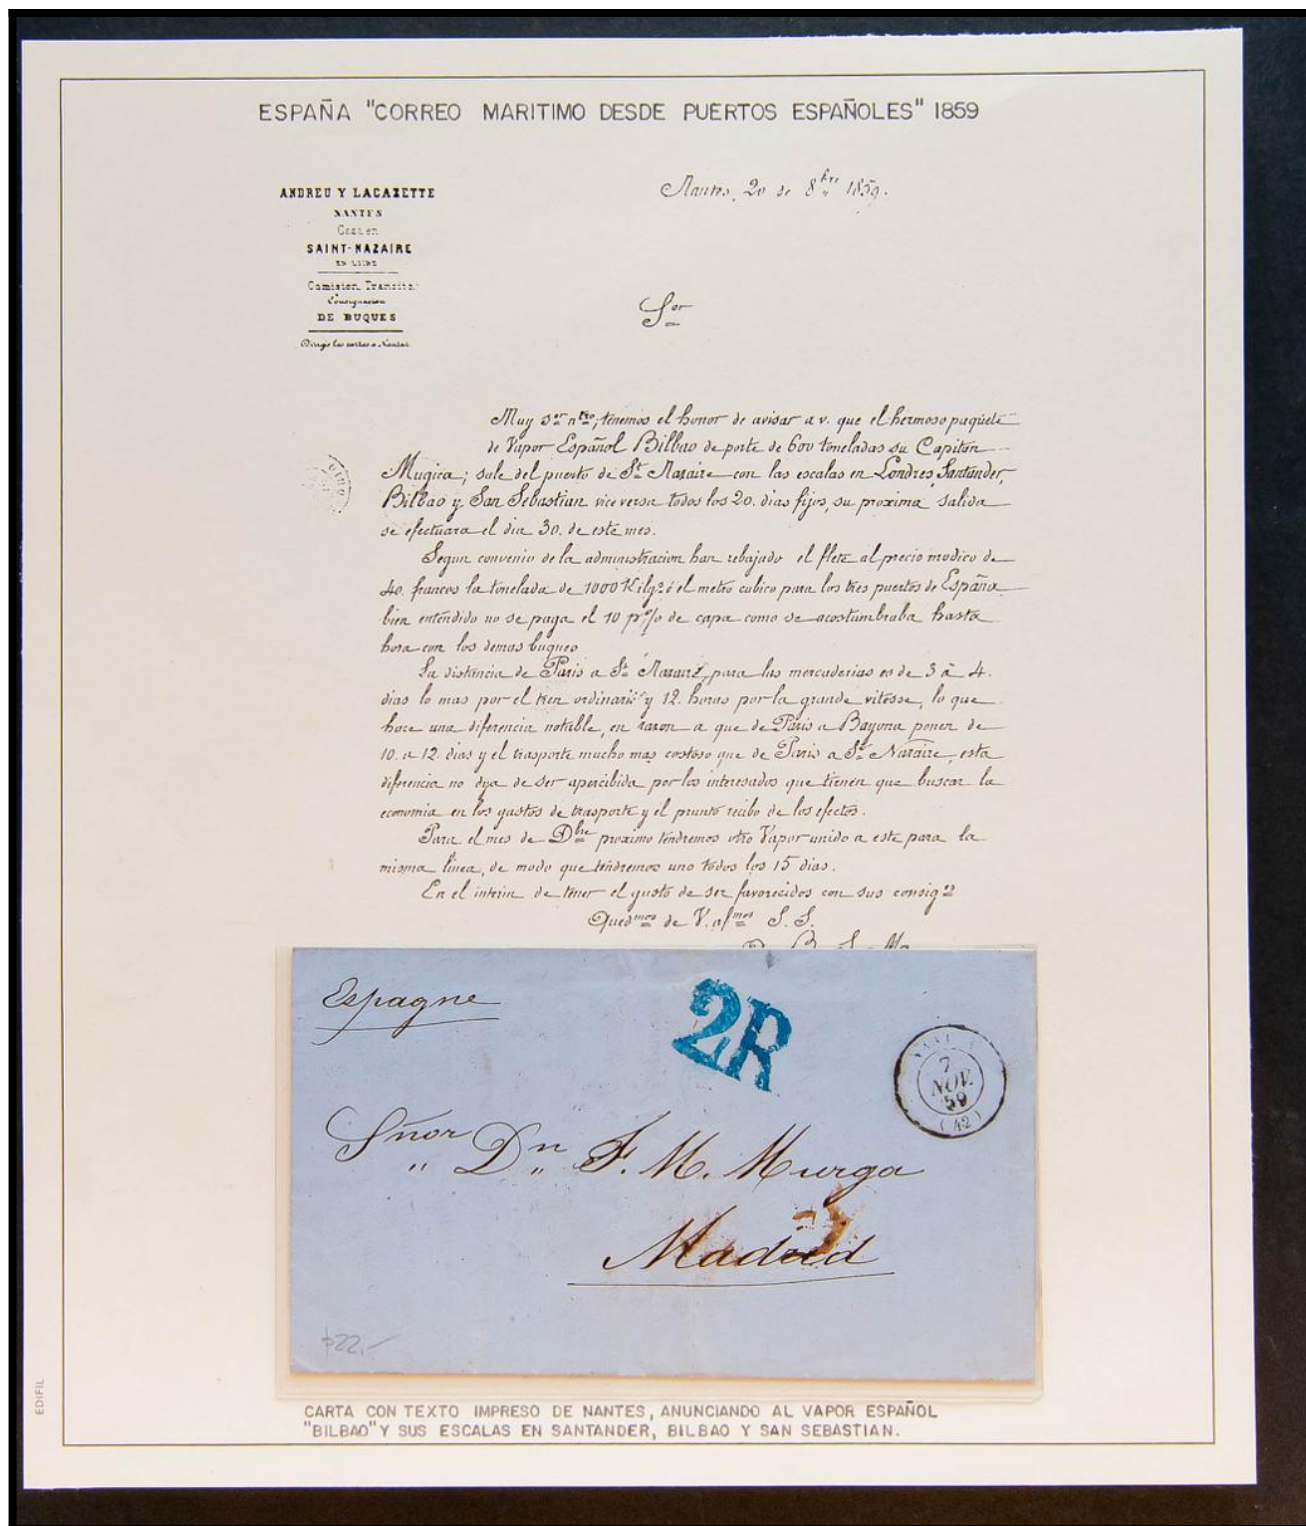 ESPAÑA "CORREO MARITIMO DESDE PUERTOS ESPAÑOLES" 1859
ANDREU Y LACAZETTE
NANTES
Casa en
SAINT-NAZAIRE
Comision, Transito.
Consignacion
DE BUQUES
Dirigir las cartas a Nantes.
Nantes, 20 de 8bre 1859.
Sor
Muy Sor ntro; tenemos el honor de avisar a v. que el hermoso paquete
de Vapor Español Bilbao de porte de 600 toneladas su Capitan
Mugica; sale del puerto de St. Nazaire con las escalas en Londres, Santander,
Bilbao y San Sebastian vice versa todos los 20. dias fijos, su proxima salida
se efectuara el dia 30. de este mes.
Segun convenio de la administracion han rebajado el flete al precio modico de
40. francos la tonelada de 1000 Kilgs ó el metro cubico para los tres puertos de España
bien entendido no se paga el 10 p% de capa como se acostumbraba hasta
hora con los demas buques
La distancia de Paris a St. Nazaire, para las mercaderias es de 3 à 4.
dias lo mas por el tren ordinario y 12. horas por la grande vitesse, lo que
hace una diferencia notable, en razon a que de Paris a Bayona ponen de
10. a 12. dias y el trasporte mucho mas costoso que de Paris a St. Nazaire, esta
diferencia no dya de ser apercibida por los interesados que tienen que buscar la
economia en los gastos de trasporte y el prunto recibo de los efectos.
Para el mes de Dbre proximo tendremos otro Vapor unido a este para la
misma linea, de modo que tendremos uno todos los 15 dias.
En el interin de tener el gusto de ser favorecidos con sus consigs
Quedmos de V. afmos S. S.
Espagne
2R
7
NOV.
59
(42)
Sñor Dn F. M. Murga
Madrid
EDIFIL
CARTA CON TEXTO IMPRESO DE NANTES, ANUNCIANDO AL VAPOR ESPAÑOL
"BILBAO" Y SUS ESCALAS EN SANTANDER, BILBAO Y SAN SEBASTIAN.